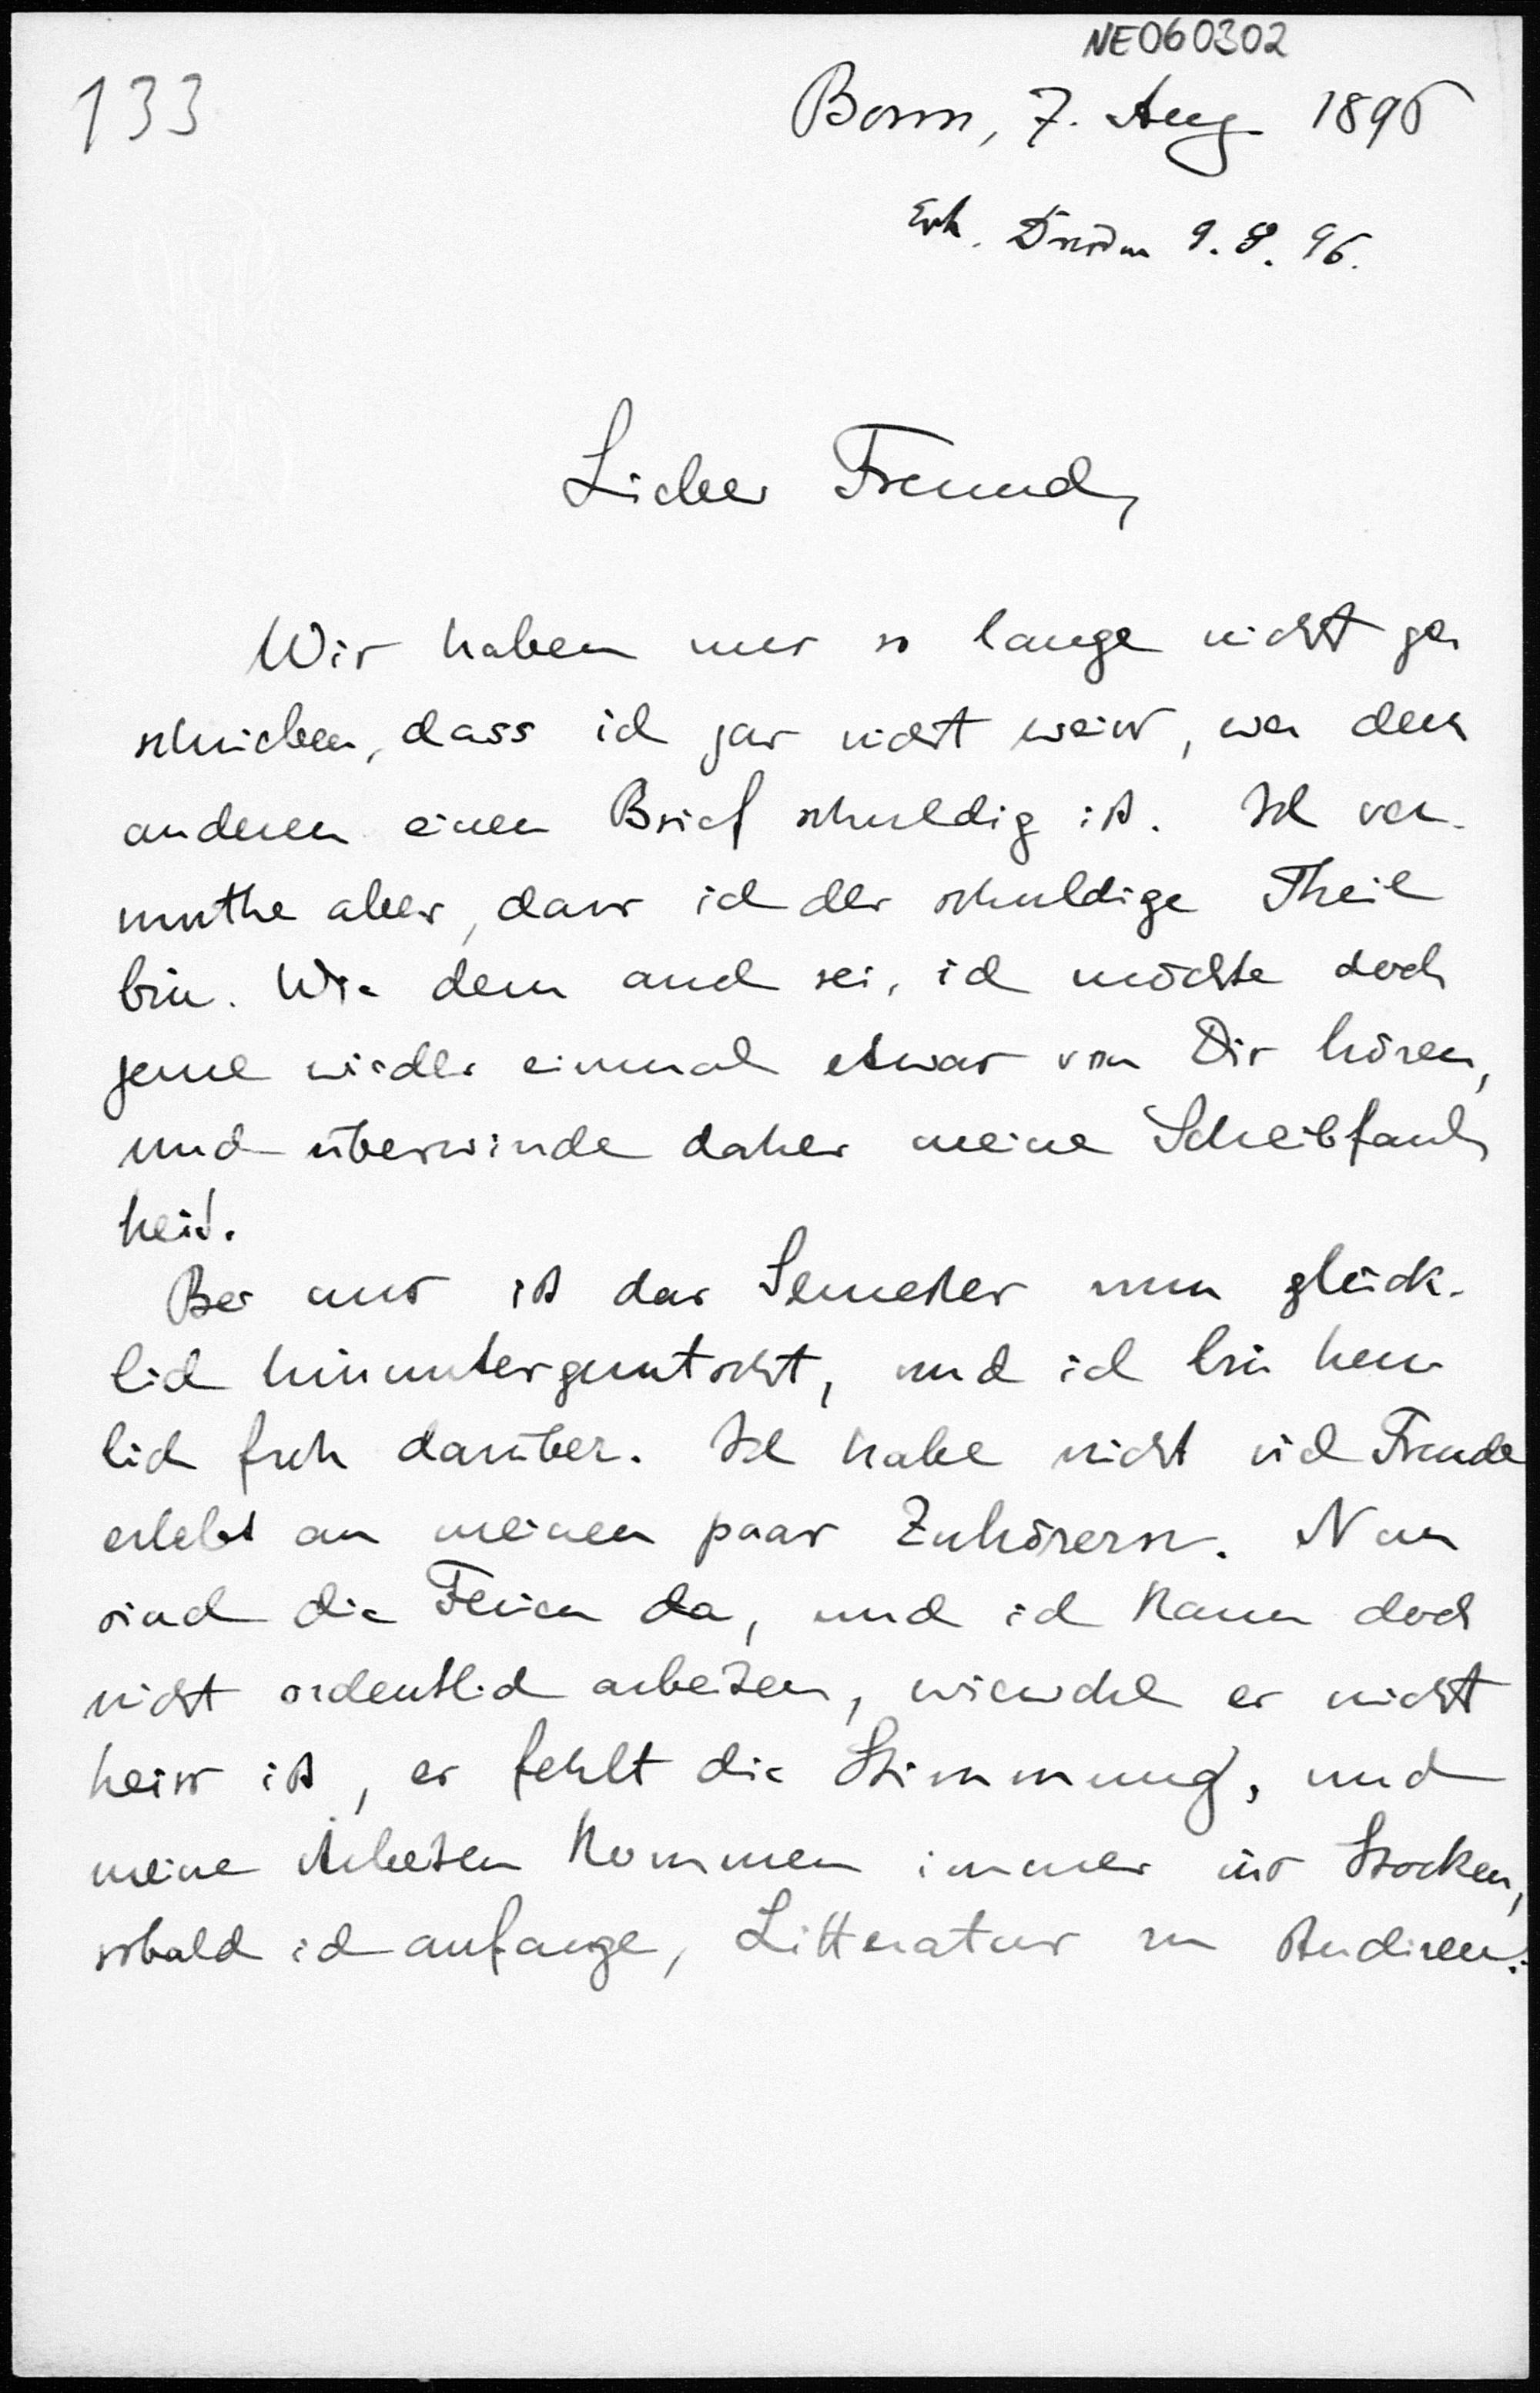 NE060302
133
Bonn, 7. Aug 1896
Erh. Dresden 9.8.96.
Lieber Freund,
Wir haben uns so lange nicht ge
schrieben, dass ich gar nicht weiss, wer dem
anderen einen Brief schuldig ist. Ich ver-
muthe aber, dass ich der schuldige Theil
bin. Wie dem auch sei, ich möchte doch
gerne wieder einmal etwas von Dir hören,
und überwinde daher meine Scheibfaul
heit.
Bei uns ist das Semester nun glück-
lich hinuntergerutscht, und ich bin herz
lich froh darüber. Ich habe nicht viel Freude
erlebt an meinen paar Zuhörern. Nun
sind die Ferien da, und ich kann doch
nicht ordentlich arbeiten, wiewohl es nicht
heiss ist, es fehlt die Stimmung, und
meine Arbeiten kommen immer ins Stocken,
sobald ich anfange, Litteratur zu studiren.